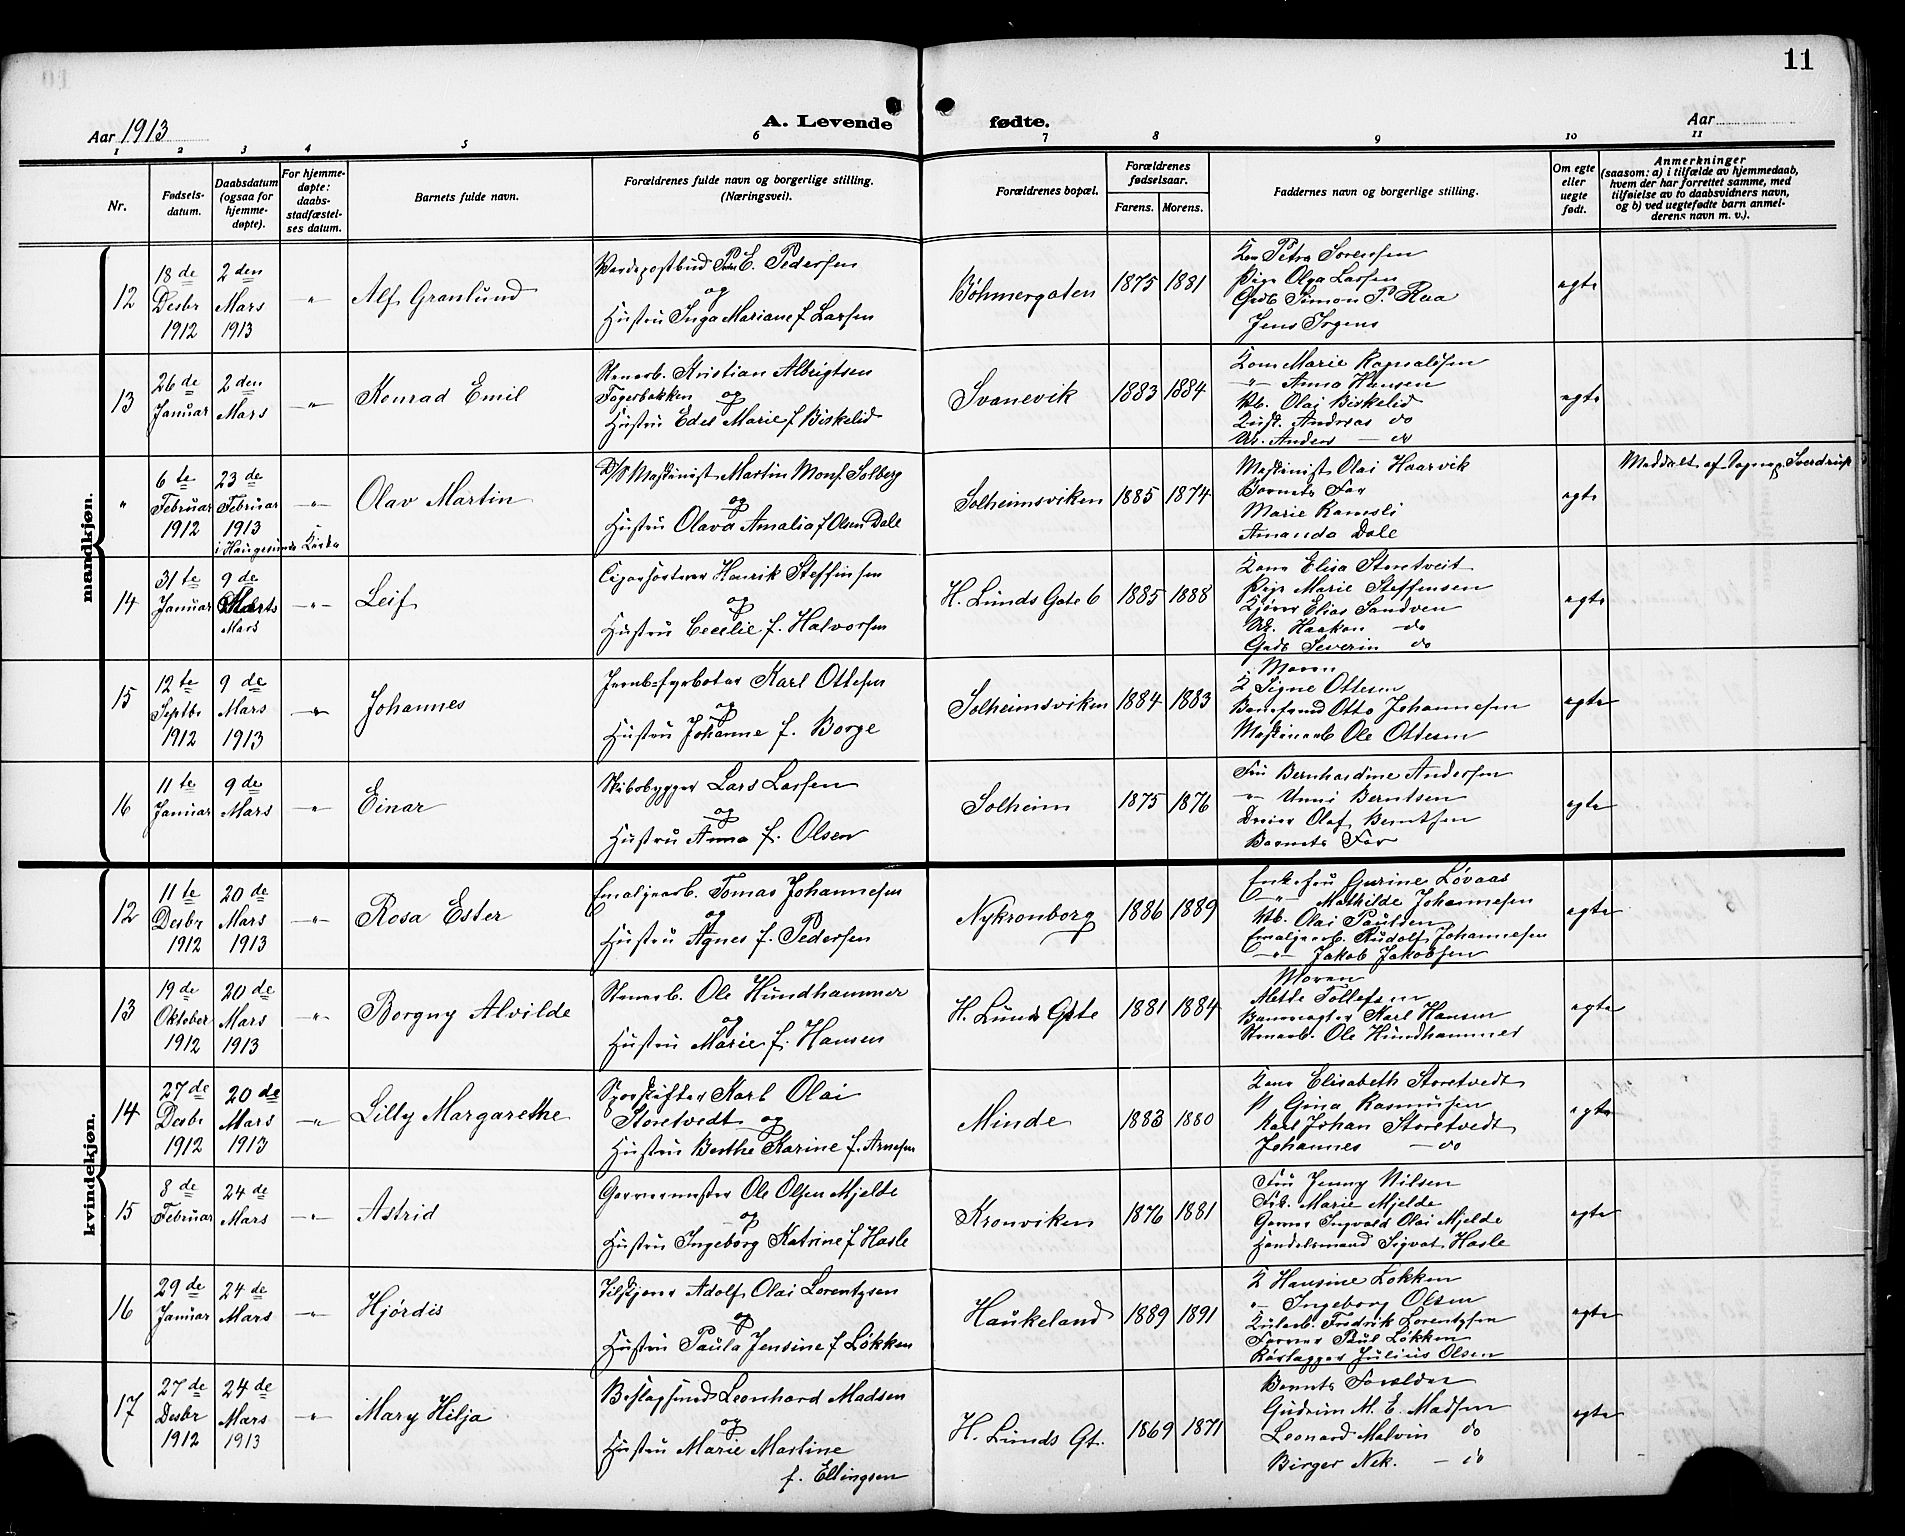 11
Aar 1913
A. Levende fødte.
Aar
1 2 3 4 5 6 7 8 9 10 11
Nr.
Fødsels-
datum.
Daabsdatum
(ogsaa for
hjemme-
døpte).
For hjemme-
døpte:
daabs-
stadfæstel-
ses datum.
Barnets fulde navn.
Forældrenes fulde navn og borgerlige stilling.
(Næringsvei).
Forældrenes bopæl.
Forældrenes
fødselsaar.
Farens. Morens.
Faddernes navn og borgerlige stilling.
Om egte
eller
uegte
født.
Anmerkninger
(saasom: a) i tilfælde av hjemmedaab,
hvem der har forrettet samme, med
tilføielse av to daabsvidners navn,
og b) ved uegtefødte barn anmel-
derens navn m. v.).
mandkjøn.
12
18 de
Desbr
1912
2 den
Mars
1913
"
Alf Granlund
E. Pedersen
og
Hustru Inga Mariane f. Larsen
Böhmergaten
1875 1881
Kone Petra Sorensen
Pige Olga Larsen
Gadb Simon P. Raa
Jens Jrgens
egte
13
26 de
Januar
2 den
Mars
"
Konrad Emil
Stenarb. Kristian Albrigtsen
Fagerbakken og
Hustru Edel Marie f Birkelid
Svanevik
1883 1884
Kone Marie Ragnaldsen
" Anna Hansen
Olai Birkelid
Andreas do
Anders do
egte
"
6 te
Februar
1912
23 de
Februar
1913
i Haugesunds Kirke
"
Olav Martin
D/S Maskinist Martin Mons. Solberg
og
Hustru Olava Amalia f Olsen Dale
Solheimsviken
1885 1874
Maskinist Olai Haarvik
Barnets Far
Marie Ramsli
Amanda Dale
egte
Meddelt af Sognep. Sverdrup
14
31 te
Januar
9 de
Marts
Mars
"
Leif
Cigarsorterer Henrik Steffensen
og
Hustru Cecilie f. Halvorsen
H. Lunds Gate 6
1885 1888
Kone Elisa Storetveit
Pige Marie Steffensen
Kjører Elias Sandven
Haakon do
Gadb Severin do
egte
15
12 te
Septbr
1912
9 de
Mars
1913
"
Johannes
Jernb.fyrbøter Karl Ottesen
og
Hustru Johanne f. Borge
Solheimsviken
1884 1883
Moren
K Signe Ottesen
Banefmd Otto Johannesen
Maskinarb Ole Ottesen
egte
16
11 te
Januar
9 de
Mars
"
Einar
Skibsbygger Lars Larsen
og
Hustru Anna f. Olsen
Solheim
1875 1876
Fru Bernhardine Andersen
" Unni Berntsen
Dreier Olaf Berntsen
Barnets Far
egte
kvindekjøn.
12
11 te
Desbr
1912
20 de
Mars
1913
"
Rosa Ester
Emaljearb. Tomas Johannesen
og
Hustru Agnes f. Pedersen
Nykronborg
1886 1889
Enkefru Gurine Løvaas
" Mathilde Johannesen
Olai Paulsen
Emaljearb. Rudolf Johannesen
" Jakob Jakobsen
egte
13
19 de
Oktober
1912
20 de
Mars
1913
"
Borgny Alvilde
Stenarb. Ole Hundhammer
og
Hustru Marie f. Hansen
H. Lunds Gate
1881 1884
Moren
Mette Tollefsen
Banevogter Karl Hansen
Stenarb. Ole Hundhammer
egte
14
27 de
Desbr
1912
20 de
Mars
1913
"
Lilly Margarethe
Sporskifter Karl Olai
Storetvedt og
Hustru Berthe Karine f. Arnesen
Minde
1883 1880
Kone Elisabeth Storetvedt
P Gina Rasmusen
Karl Johan Storetvedt
Johannes do
egte
15
8 de
Februar
24 de
Mars
"
Astrid
Garvermester Ole Olsen Mjelde
og
Hustru Ingeborg Katrine f Hasle
Kronviken
1876 1881
Fru Jenny Nilsen
Frk. Marie Mjelde
Garver Ingvald Olai Mjelde
Handelsmand Sigvat Hasle
egte
16
29 de
Januar
24 de
Mars
"
Hjördis
Filskjærer Adolf Olai Lorentzsen
og
Hustru Paula Jensine f Løkken
Haukeland
1889 1891
K Hansine Løkken
" Ingeborg Olsen
Kularb. Fredrik Lorentzsen
Farver Paul Løkken
Rørlægger Julius Olsen
egte
17
27 de
Desbr
1912
24 de
Mars
1913
"
Mary Hilja
Beslagsmed Leonhard Madsen
og
Hustru Marie Martine
f. Ellingsen
H. Lunds Gt.
1869 1871
Barnets Forælder
Gudrun M. E. Madsen
Leonard Malvin do
Birger Nek. do
egte